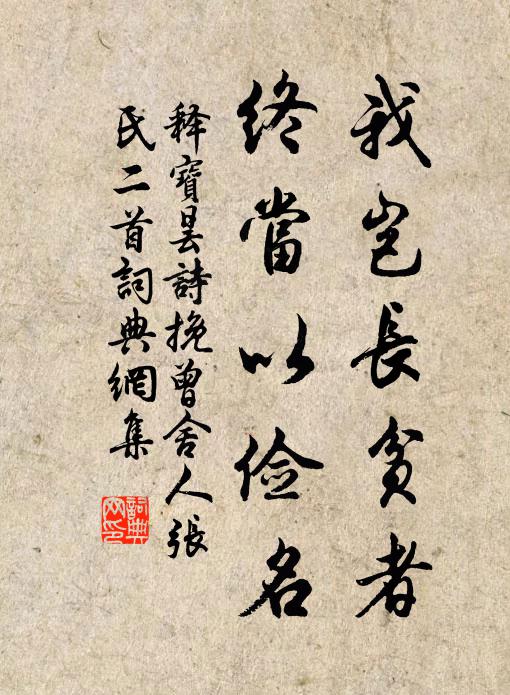 我豈長貧者
終當以儉名
釋寶曇詩挽曾舍人張
氏二首詞典網集
詞典
网印